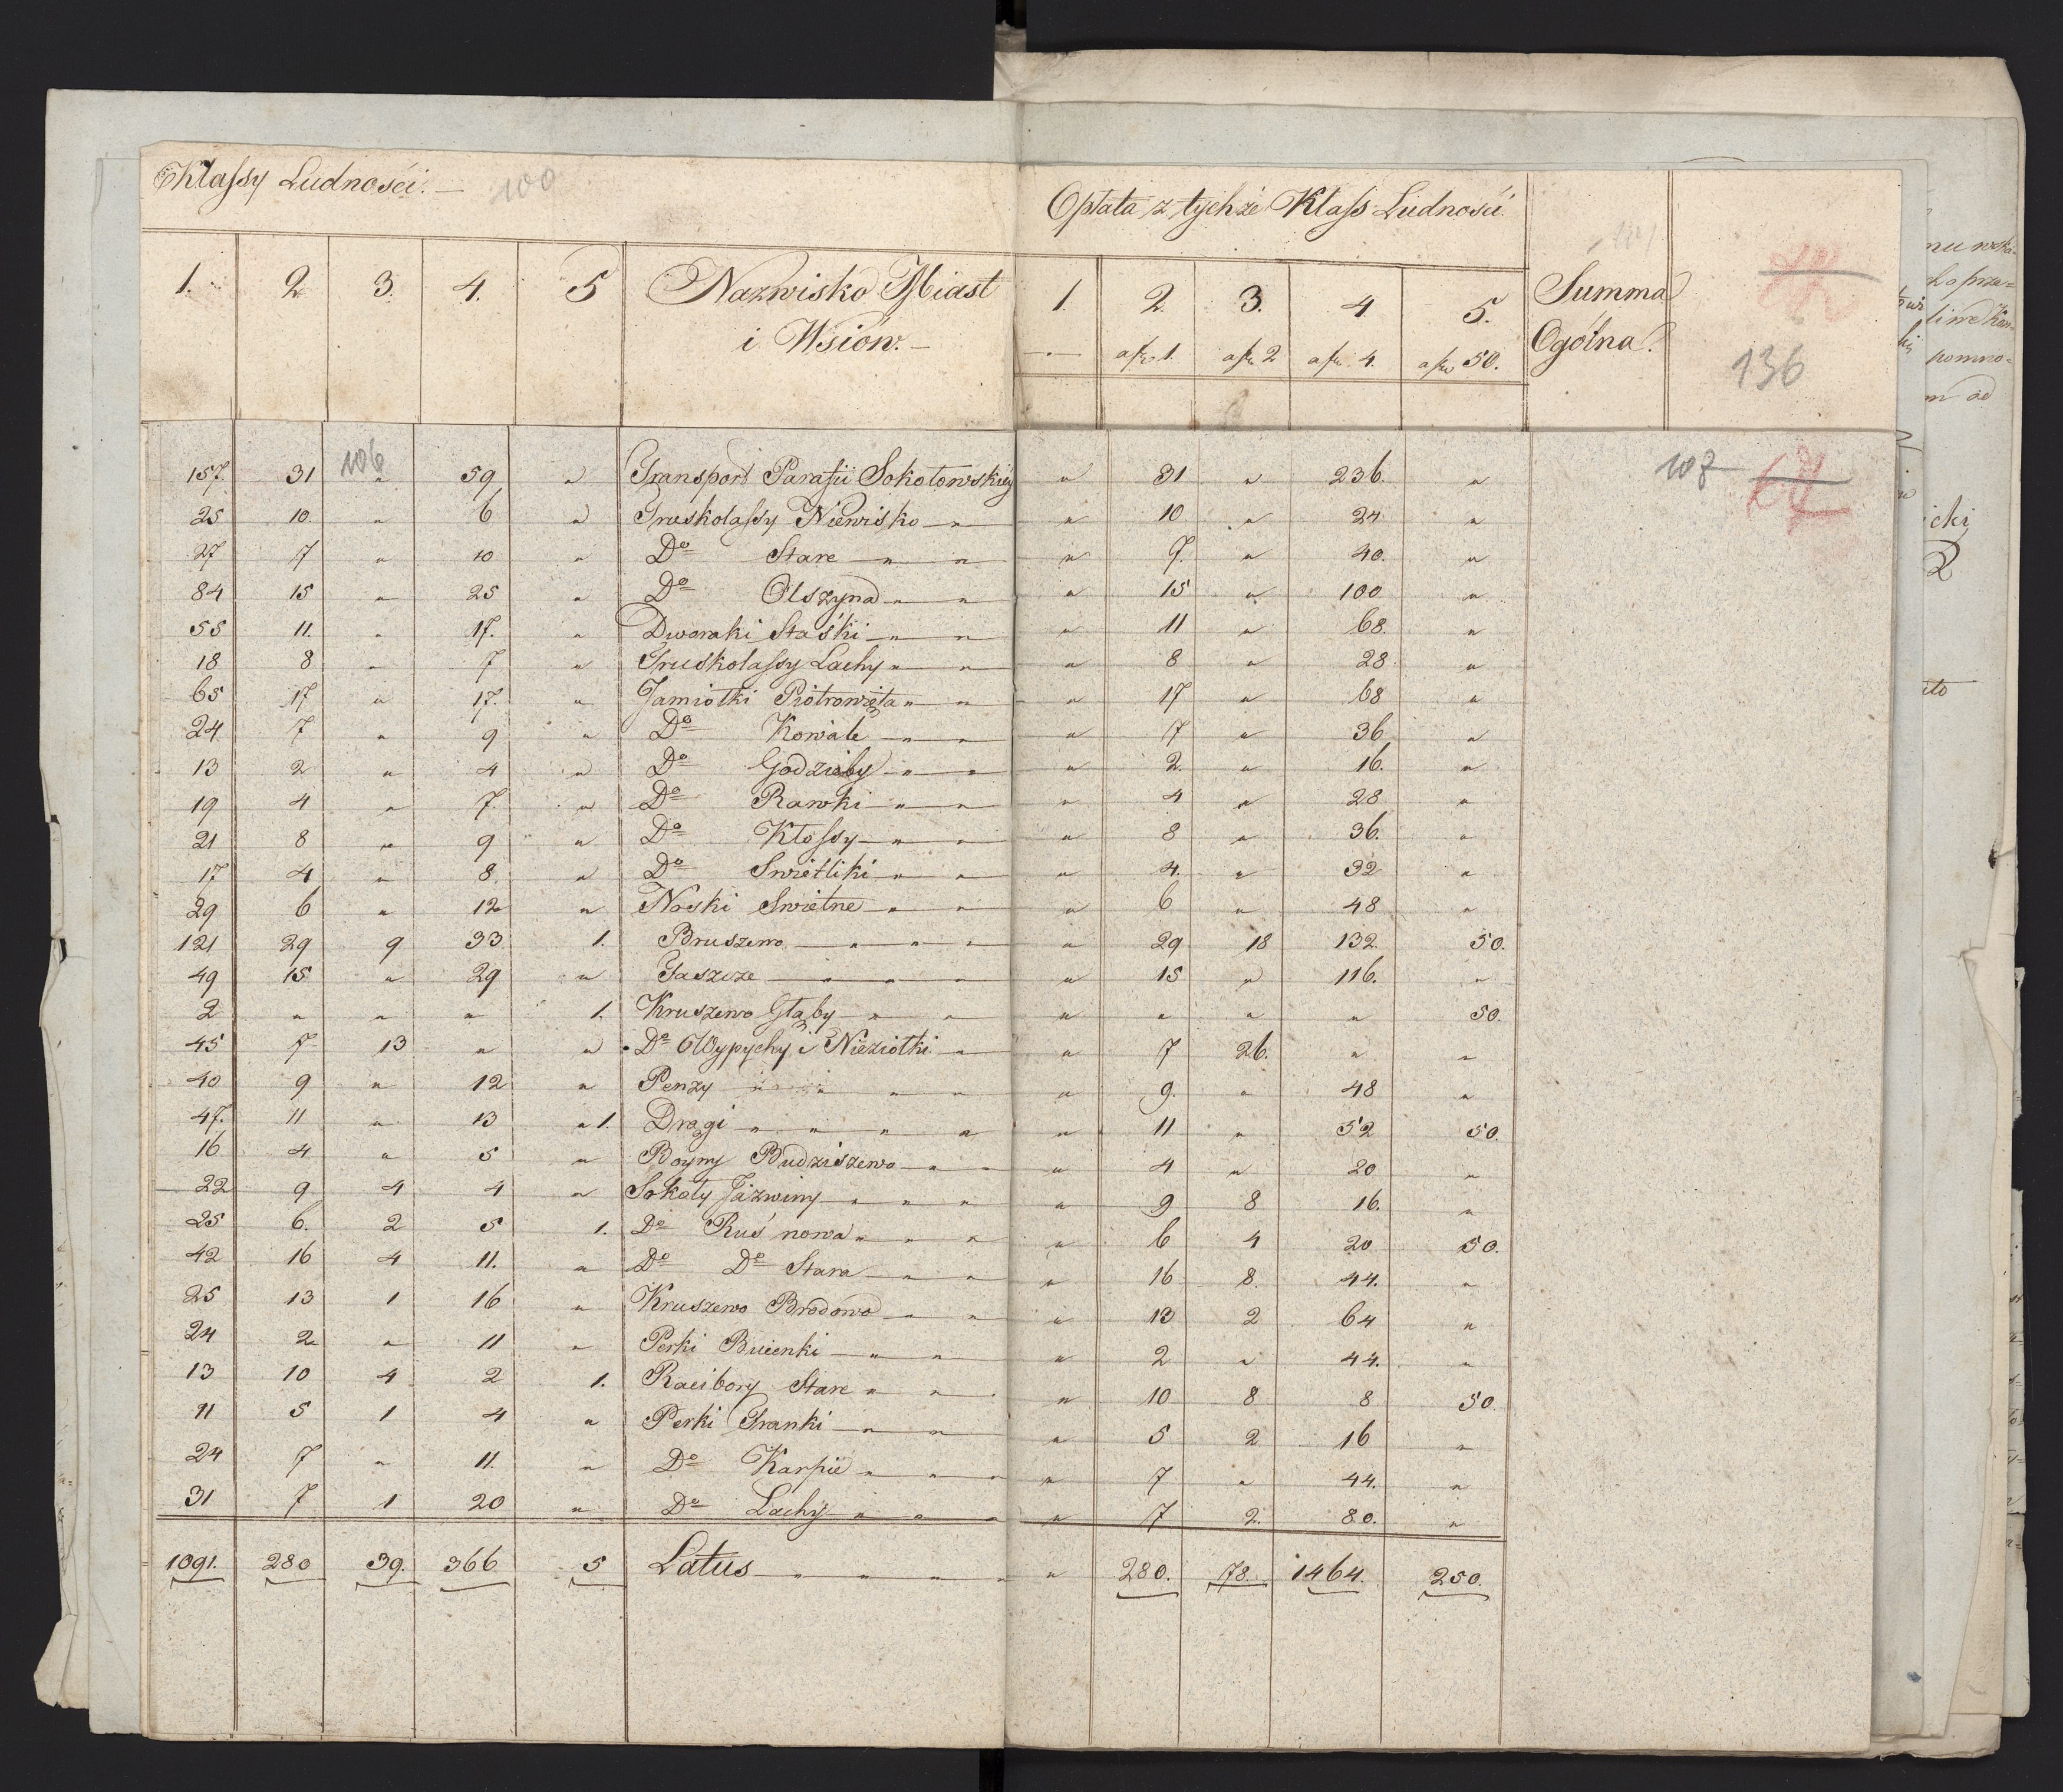 Klassy Ludnosći. — 100
Opłata z tychże Klass Ludnosći.
1. 2 3. 4. 5 Nazwisko Miast i Wsiów. — 1. 2. 3. 4 5. Summa Ogólna.
a fzł 1. a fzł 2 a fzł 4. a fzł 50.
136
106
107
157. 31 " 59 " Transport Parafii Sokołowskiéy " 31 " 236. "
25 10. " 6 " Truskolassy Niewisko " " 10 " 24 "
27 7 " 10 " Do Stare " " " 7. " 40. "
84 15 " 25 " Do Olszyna " " " 15 " 100 "
55 11. " 17. " Dworaki Staśki " " " 11 " 68. "
18 8 " 7 " Truskolassy Lachy " " " 8 " 28 "
65 17 " 17. " Jamiołki Piotrowięta " " " 17 " 68 "
24 7 " 9 " Do Kowale " " " 7 " 36 "
13 2 " 4 " Do Godzieby " " " 2. " 16. "
19 4 " 7. " Do Rawki " " " 4 " 28 "
21 8 " 9 " Do Kłossy " " " 8 " 36. "
17 4 " 8 " Do Swietliki " " " 4. " 32 "
29 6 " 12 " Noski Swietne " " " 6 " 48 "
121 29 9 33 1. Bruszewo " " " " 29 18 132 50.
49 15 " 29 " Jaszcze " " " " 15 " 116. "
2 " " " 1. Kruszewo Głąby " " " " " " 50.
45 7 13 " " Do Wypychy i Nieziołki " " 7 26. " "
40 9 " 12 " Penzy " " " " " 9. " 48 "
47. 11 " 13 " 1. Dragi " " " " " 11 " 52 50.
16 4 " 5 " Boyny Budziszewo " " " 4 " 20 "
22 9 4 4 " Sokoły Jaźwiny " " " " 9 8 16. "
25 6. 2 5 1. Do Ruś nowa " " " " 6 4 20 50.
42 16 4 11. " Do Do Stara " " " 16 8. 44. "
25 13 1 16 " Kruszewo Brodowo " " " 13 2 64 "
24 2 " 11 " Perki Bucenki " " " 2 " 44. "
13 10 4 2 1. Racibory Stare " " " 10 8 8 50
11 5 1 4 " Perki Franki " " " 5 2 16 "
24 7 " 11. " Do Karpie " " " " 7 " 44. "
31 7 1 20 " Do Lachy " " " " 7 2. 80. "
1091. 280 39. 366 5 Latus " " " " " 280. 78. 1464. 250.